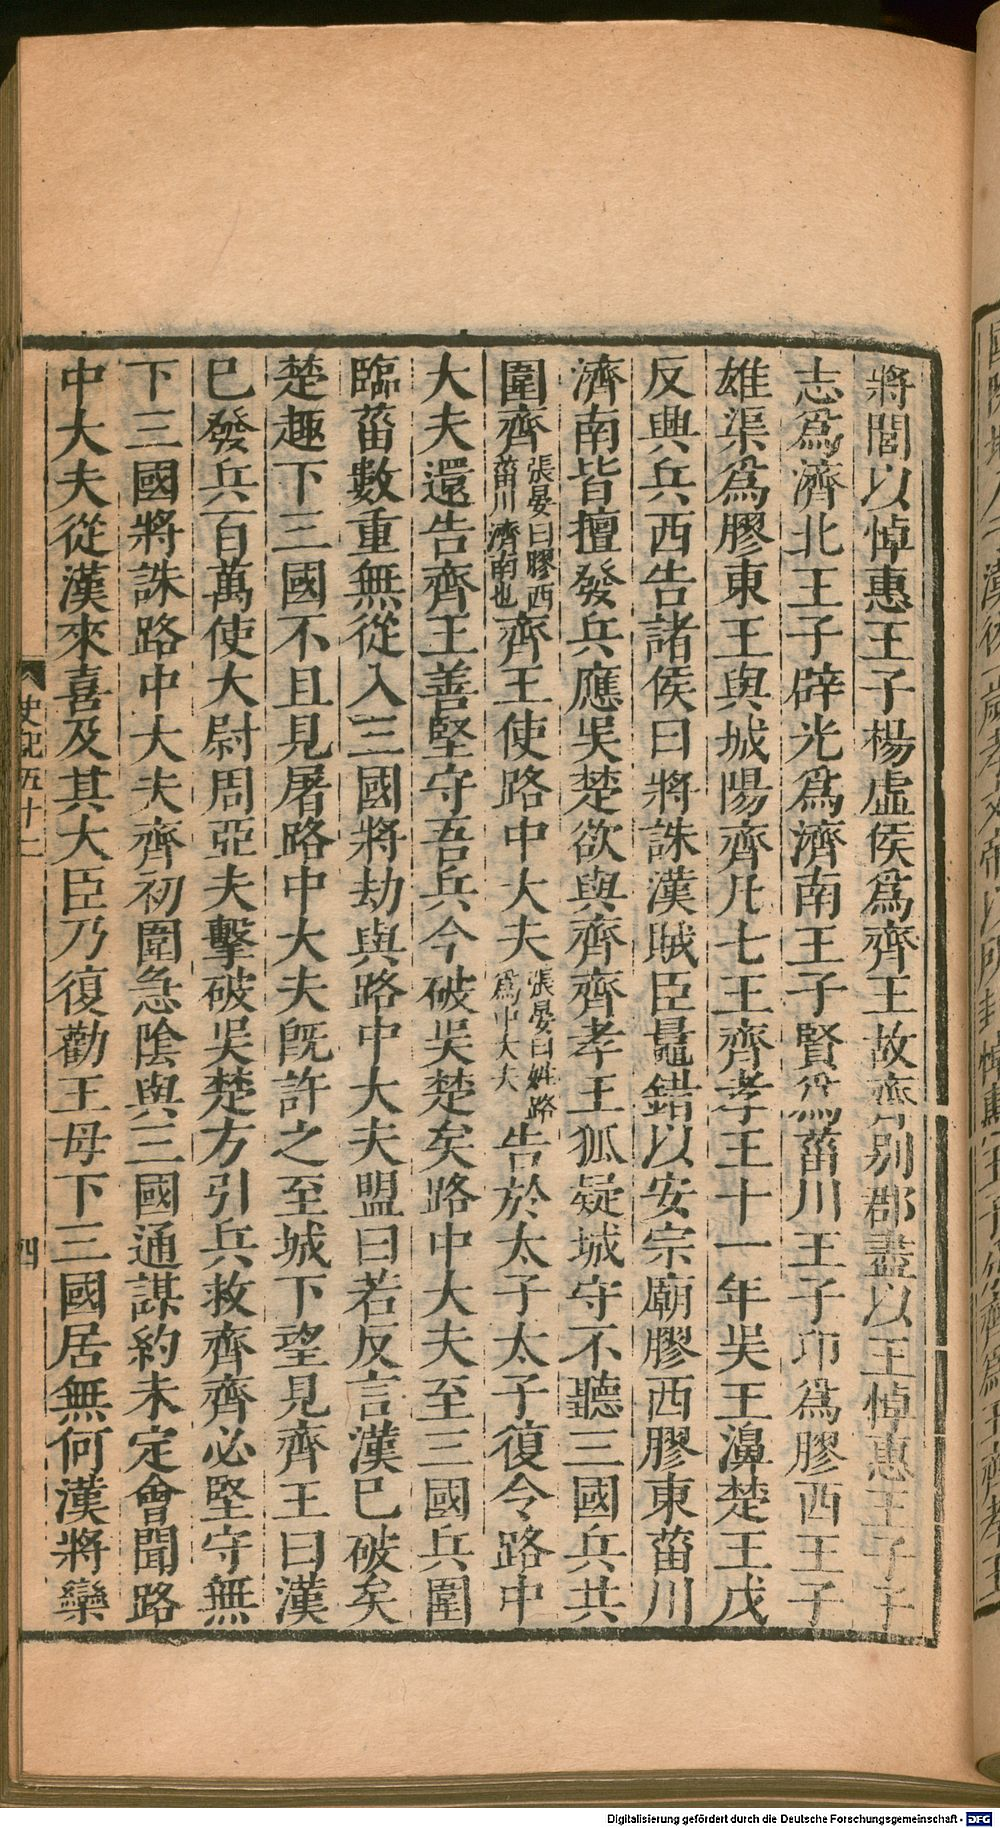 將閭以悼惠王子楊虛侯爲齊王故齊別郡盡以王悼惠王子子
志爲濟北王子辟光爲濟南王子賢爲菑川王子卬爲膠西王子
雄渠爲膠東王與城陽齊凡七王齊孝王十一年吴王濞楚王戊
反興兵西告諸侯曰將誅漢賊臣鼂錯以安宗廟膠西膠東菑川
濟南皆擅發兵應吴楚欲與齊齊孝王狐疑城守不聽三國兵共
圍齊張晏曰膠西菑川濟南也齊王使路中大夫張晏曰姓路爲中大夫告於太子太子復令路中
大夫還告齊王善堅守吾兵今破吴楚矣路中大夫至三國兵圍
臨菑數重無從入三國將劫與路中大夫盟曰若反言漢已破矣
楚趣下三國不且見屠路中大夫旣許之至城下望見齊王曰漢
已發兵百萬使大尉周亞夫擊破吴楚方引兵救齊齊必堅守無
下三國將誅路中大夫齊初圍急陰與三國通謀約未定會聞路
中大夫從漢來喜及其大臣乃復勸王毋下三國居無何漢將欒
史記五十二
四
Digitalisierung gefördert durch die Deutsche Forschungsgemeinschaft - DFG